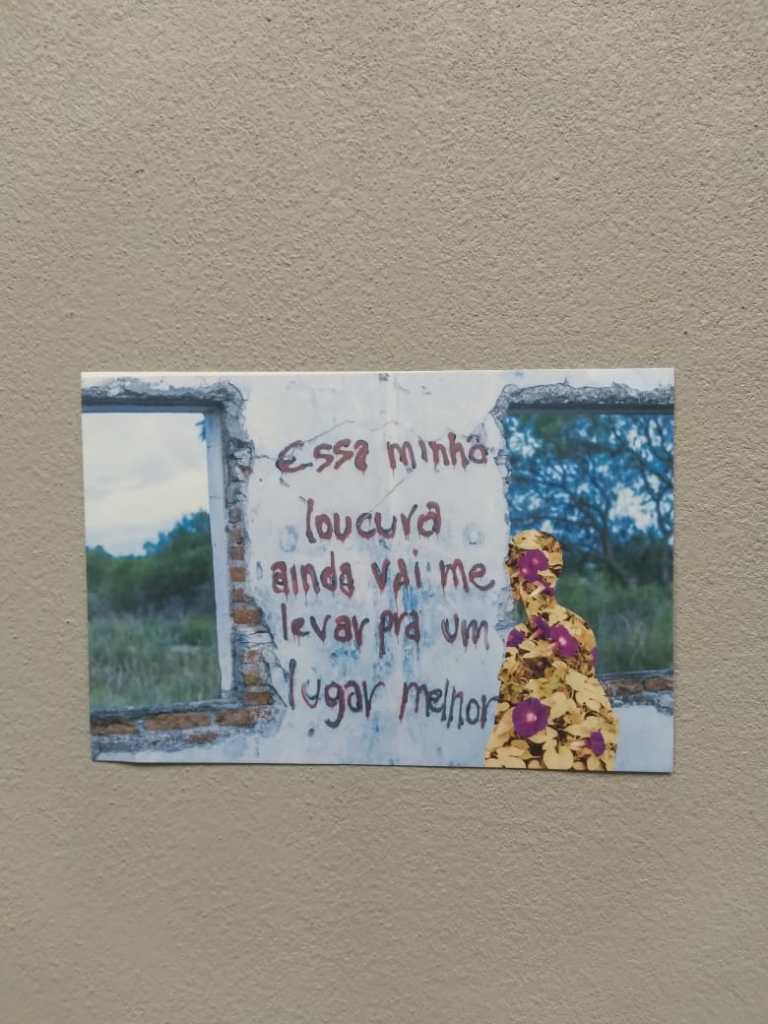 Essa minha
loucura
ainda vai me
levar pra um
lugar melhor